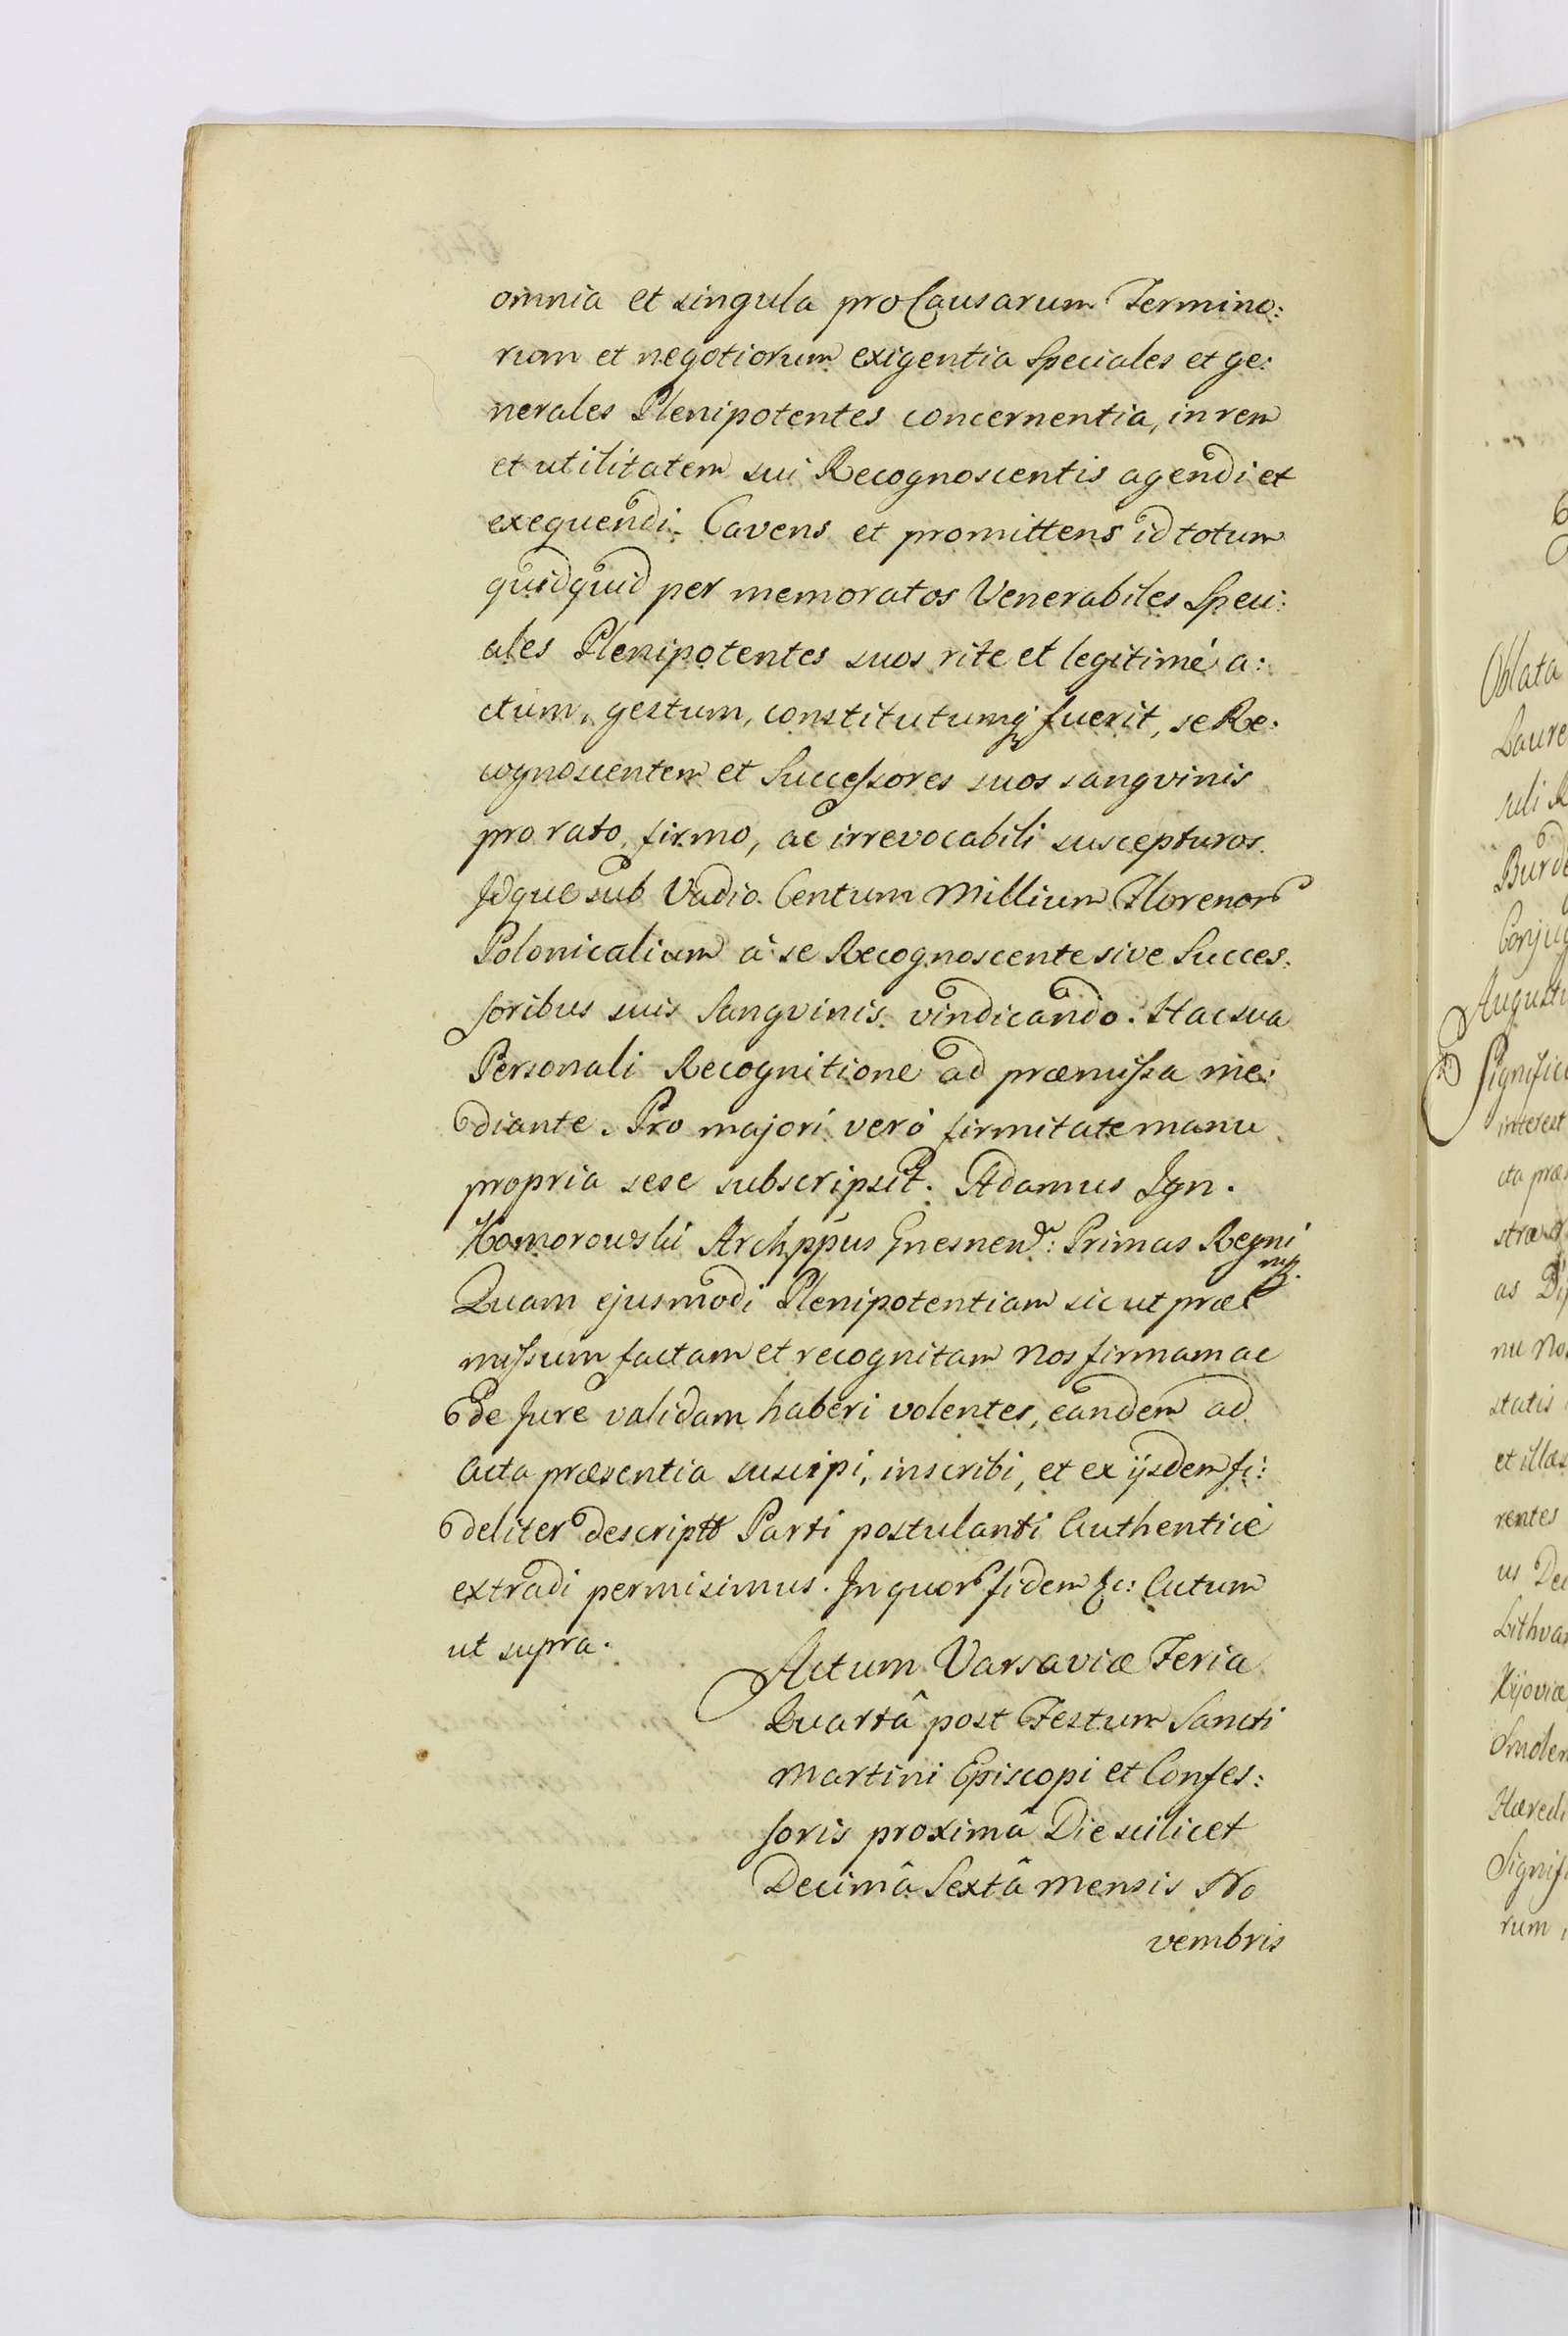 omnia et singula pro Causarum Termino:
rum et negotiorum exigentia Speciales et ge:
nerales Plenipotentes concernentia, in rem
et utilitatem sui Recognoscentis agendi et
exequendi. Cavens et promittens id totum
quidquid per memoratos Venerabiles Speci:
ales Plenipotentes suos rite et legitimé a:
ctum, gestum, constitutumq fuerit, se Re:
cognoscentem et Successores suos sangvinis
pro rato, firmo, ac irrevocabili suscepturos.
Idque sub Vadio Centum Millium Florenor
Polonicalium à se Recognoscente sive Succes:
soribus suis Sangvinis vindicando. Hac sua
Personali Recognitione ad præmissa me:
diante. Pro majori veró firmitate manu
propria sese subscripsit. Adamus Ign.
Komorowski Archppus Gnesnen: Primas Regni
mp.
Quam ejusmodi Plenipotentiam sic ut præ
missum factam et recognitam Nos firmam ac
de Jure validam haberi volentes, eandem ad
Acta præsentia suscipi, inscribi, et ex ijsdem fi:
deliter descriptt Parti postulanti Authenticé
extradi permisimus. In quor fidem &c: Actum
ut supra.
Actum Varsaviæ Feria
Quartâ post Festum Sancti
Martini Episcopi et Confes:
soris proximâ Die scilicet
Decimâ Sextâ Mensis No
vembris
Oblata
Laure
Burde
Conjug
Augusti
Signific
interest
cta præ
as
nu No
statis
et illæs
rentes
us Dec
Lithva
Kijoviæ
Smolen
Hæredi
Signifi
rum,